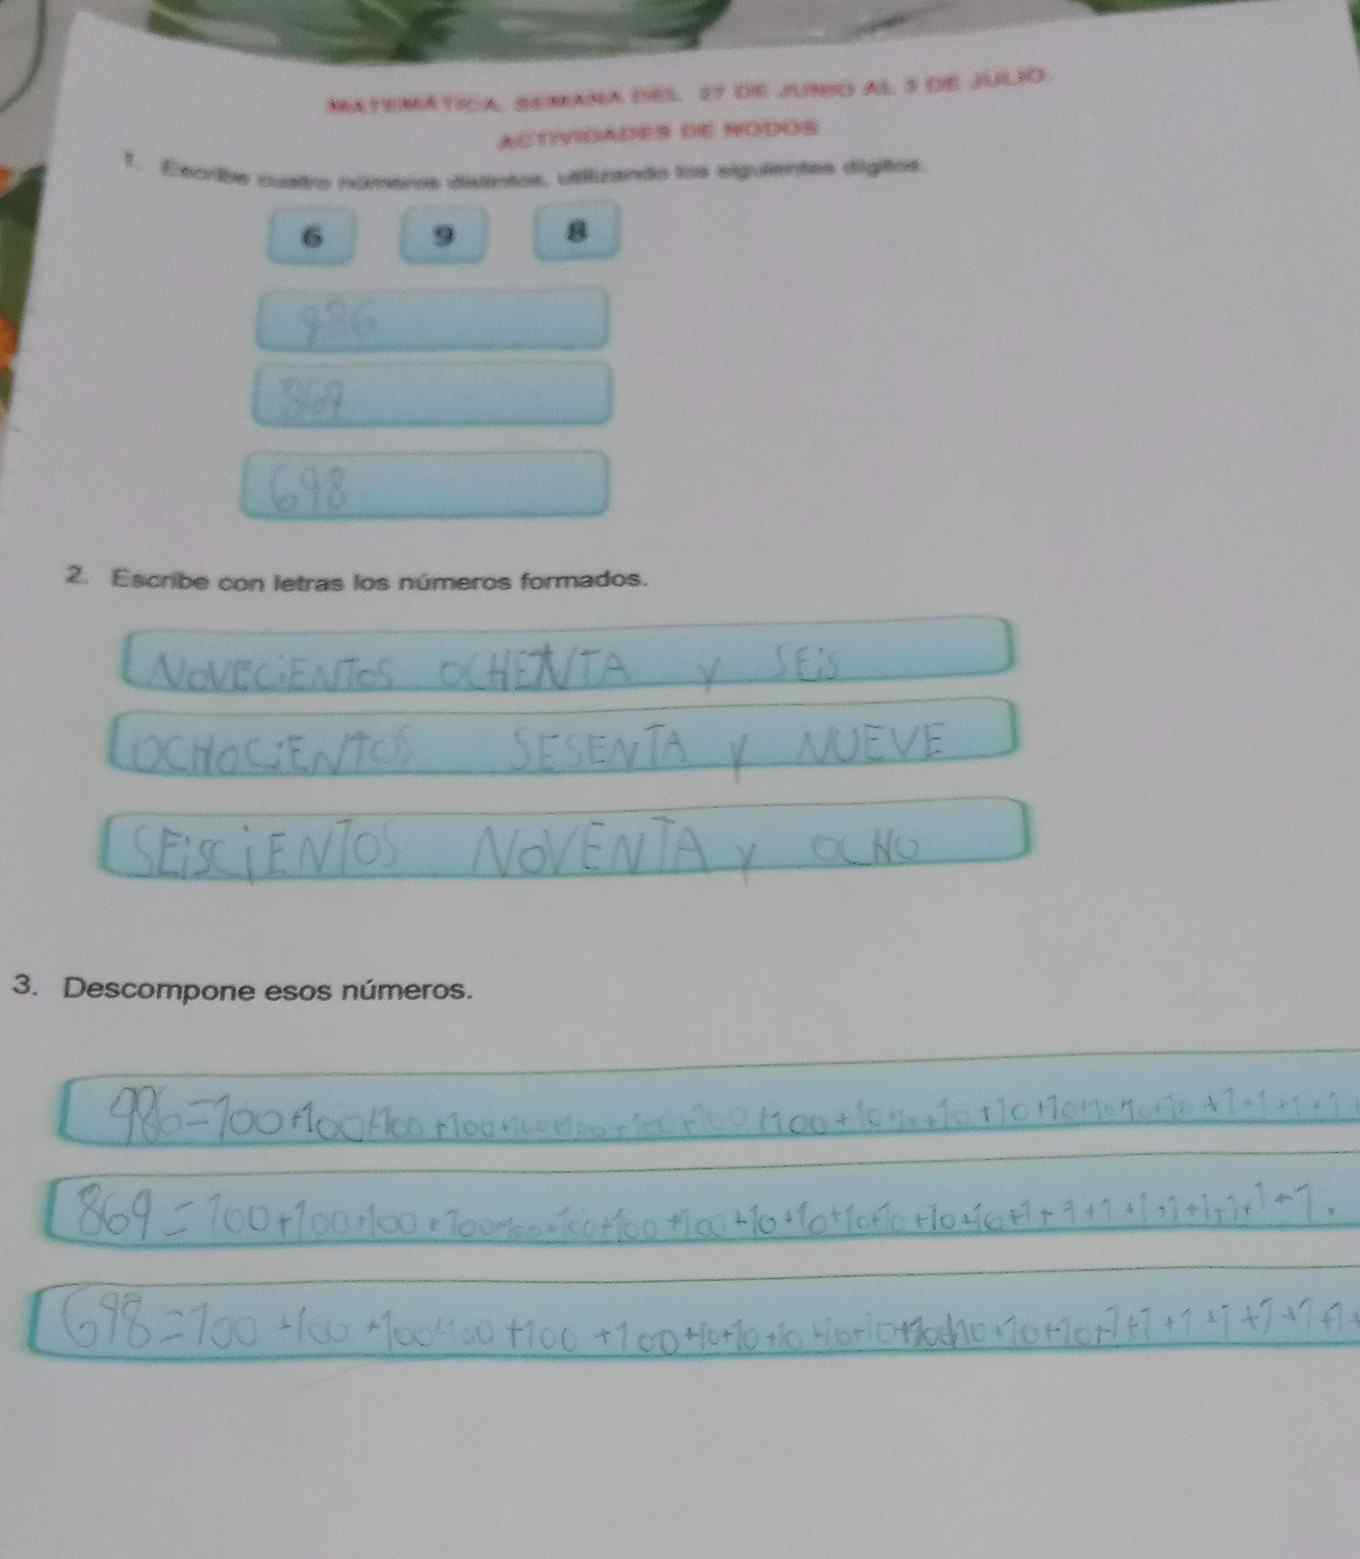 MATEMÁTICA, SEMANA DEL 27 DE JUNIO AL 3 DE JULIO.
ACTIVIDADES DE NODOS
1. Escribe cuatro números distintos, utilizando los siguientes dígitos.
6 9 8
986
869
698
2. Escribe con letras los números formados.
NOVECIENTOS OCHENTA y SEiS
OCHOCiENTOS SESENTA y NUEVE
SEiSCiENTOS NOVENTA y OCHO
3. Descompone esos números.
986=100+100+100+100+100+100+100+100+100+10+10+10+10+10+10+10+10+1+1+1+1
869=100+100+100+100+100+100+100+100+10+10+10+10+10+10+1+1+1+1+1+1+1+1+1.
698=100+100+100+100+100+100+10+10+10+10+10+10+10+10+10+1+1+1+1+1+1+1